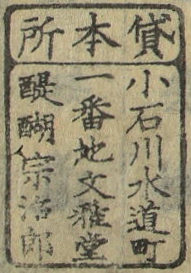 貸本所
小石川水道町
一番地文雅堂
醍醐宗治郎